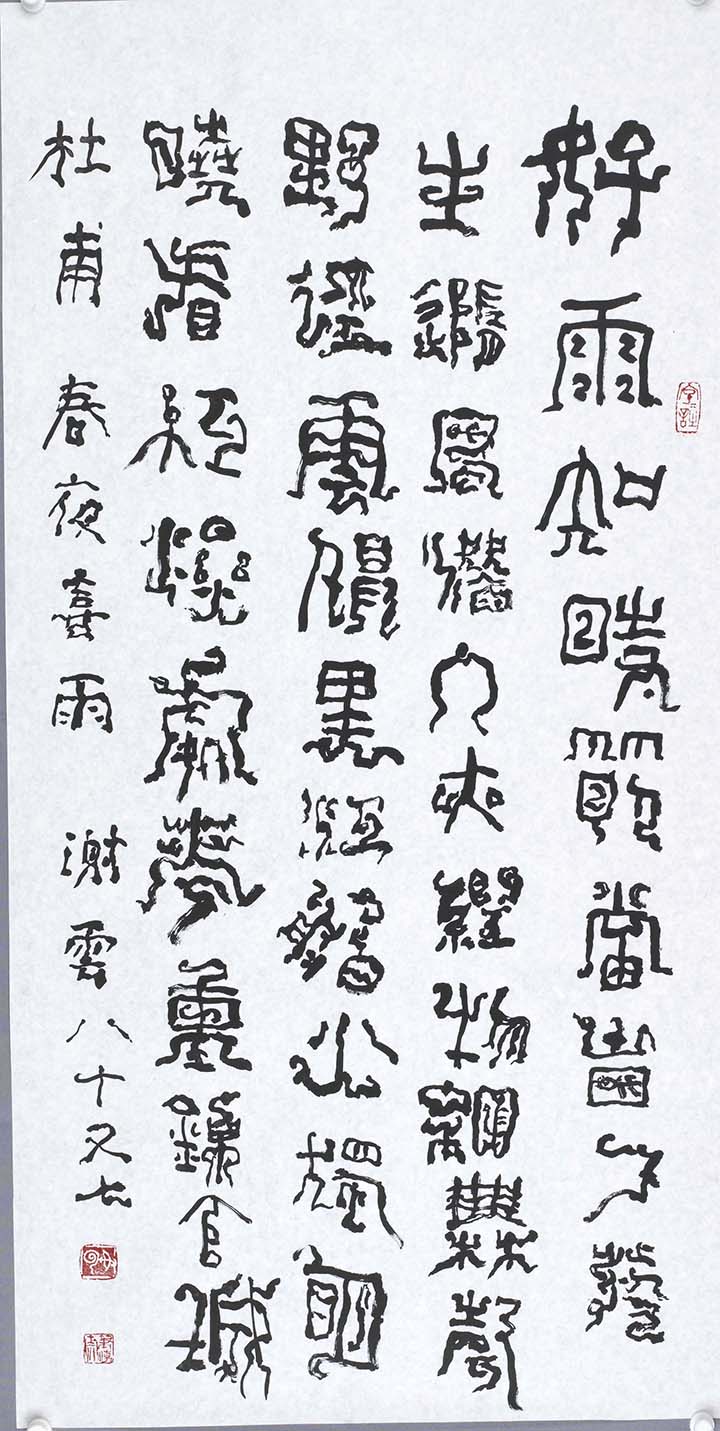 好雨知時節當春乃發
生隨風潛入夜潤物細無聲
野徑雲俱黑江船火獨明
曉看紅濕處花重錦官城
杜甫 春夜喜雨 謝雲八十又七